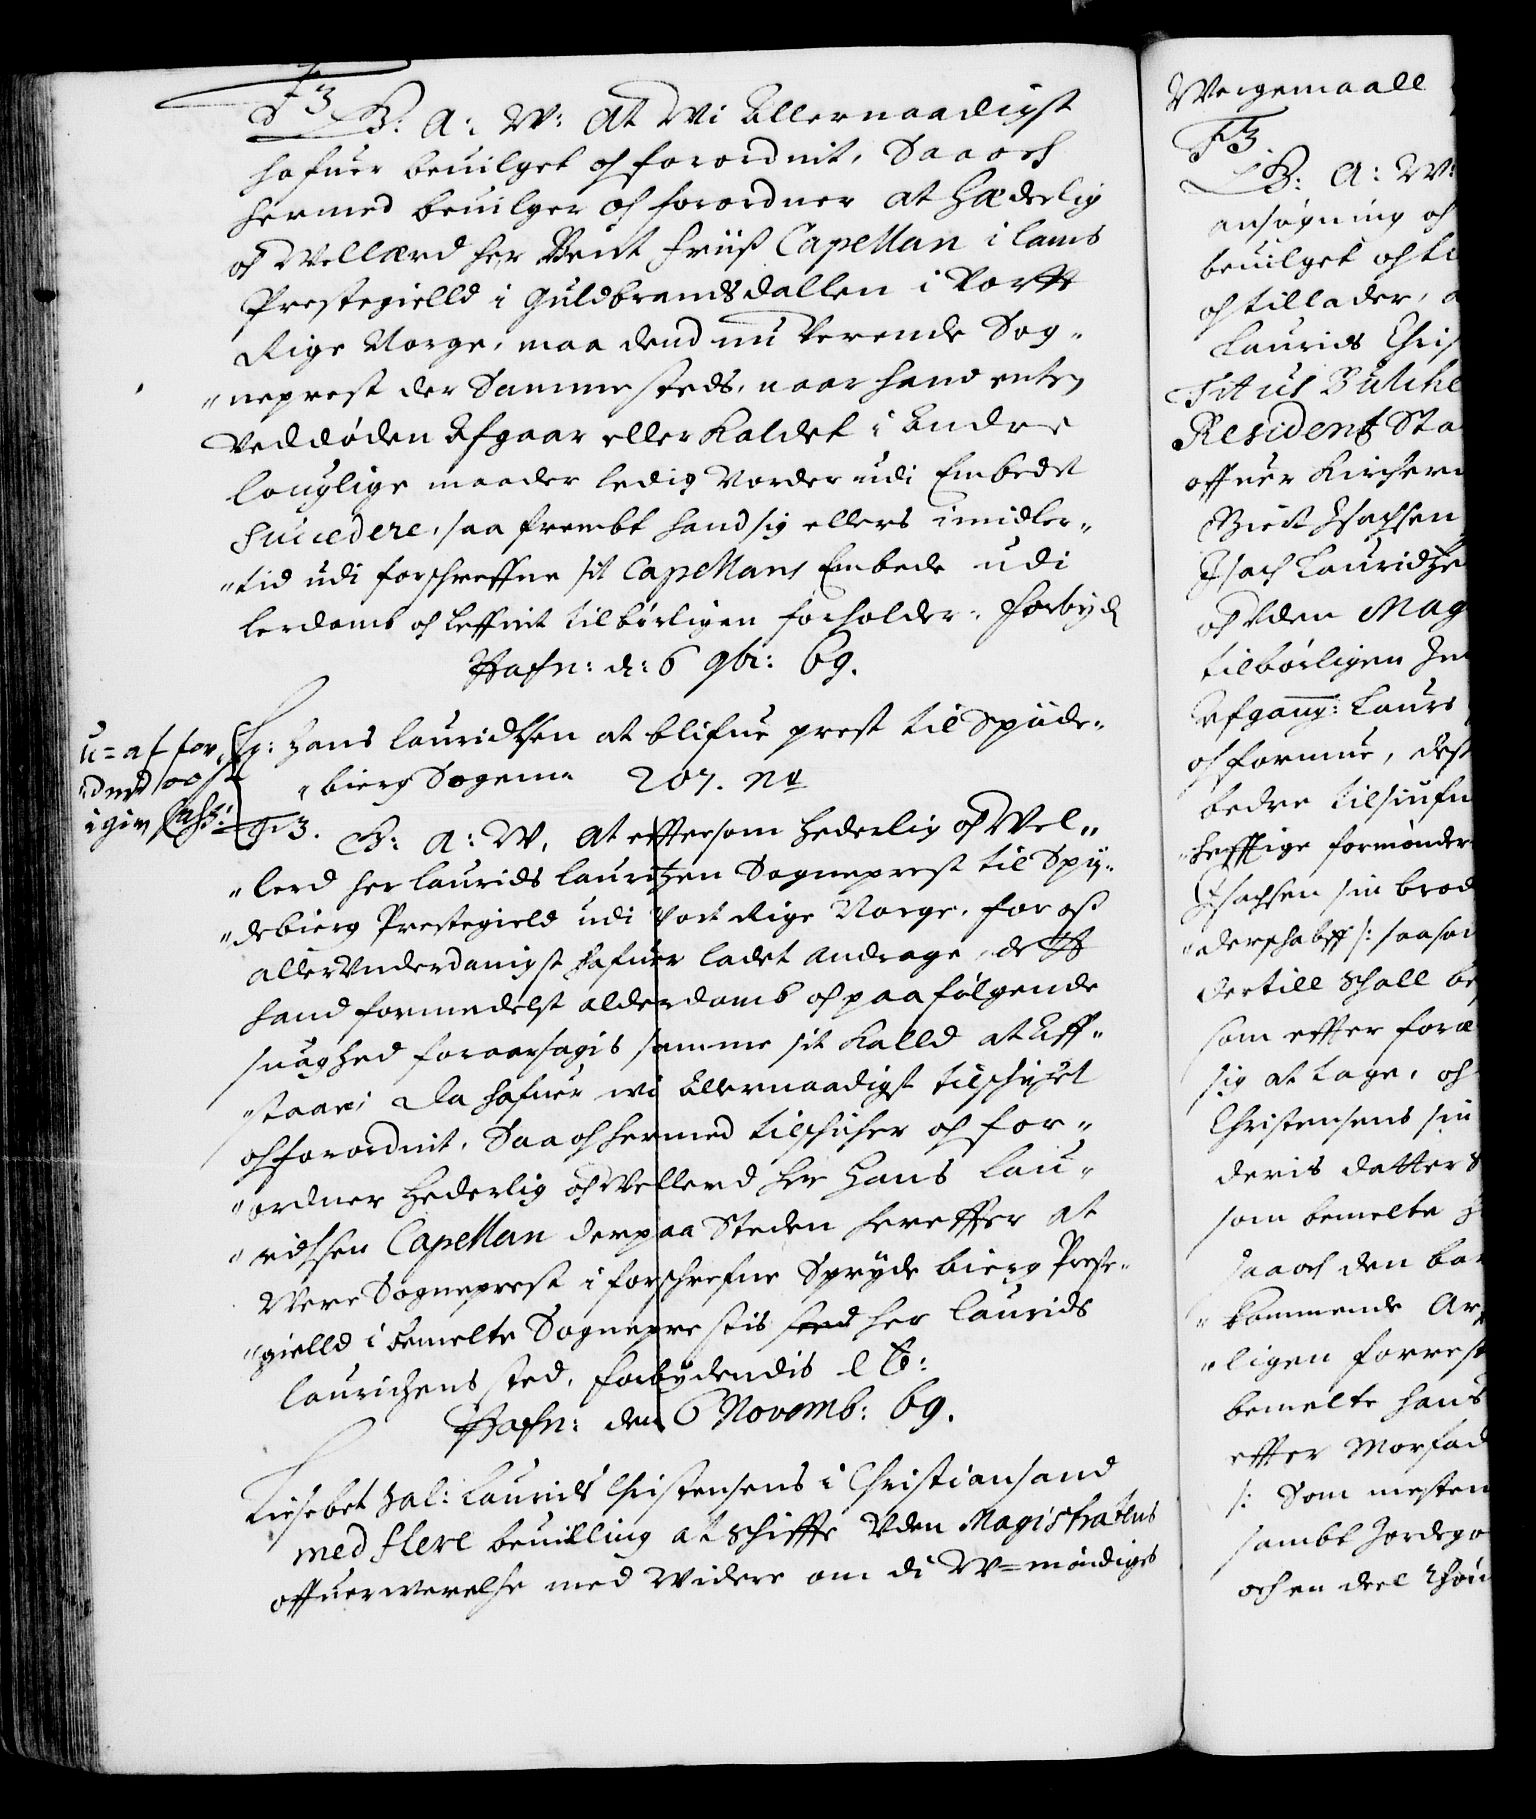 F3
B: A: W: At Wi Allernaadigst
hafuer beuilget oc forordnit, Saa och
hermed beuilger oc forordner at Hæderlig
oc Wellærd her Bent friiß Capellan i Lams
Prestegielld i Guldbrandsdallen i Vort
Rige Norge, maa dend nu Verende Sog„
„neprest der Sammesteds, naar hand enten
Ved døden Afgaar eller Kaldet i Andre
louglige maader ledig Vorder udi Embedet
Succedere, saa frembt hand sig ellers imidler„
„tid udi forschreffne sit Capellans Embede udi
lerdomb oc leffnit tilbørligen forholder. Forbyd
Hafn: d: 6 9br: 69.
Hr: Hans Lauridtzen at blifue prest til Spýde„
„bierg Sogen 207. No
F3. B: A: W. At effttersom Hederlig oc Wel„
„lerd her Laurids Lauritzen Sogneprest til Spÿ„
„debierg Prestegield udi Vort Rige Norge, for oß
allerVnderdanigst hafuer ladet Andrage, dett
hand formedelst alderdomb oc paafølgende
suaghed foraarsagis samme sit Kalld at Aff„
„staae; Da hafuer wi Allernaadigst tilschicket
oc forordnit, Saa oc hermed tilschicker oc for„
„ordner Hederlig oc Wellerd her Hans Lau„
„ridtsen Capellan der paa Steden hereffter at
Were Sogneprest i forschrefne Spydebierg Preste„
„gielld i bemelte Sogneprestis sted her Laurids
Lauritzens sted, forbydendis etc:
Hafn: den 6 Novemb: 69.
Liesebet Sal: Laurids Christensens i Christiansand
med flere beuilling at schiffte Vden Magistratens
offuerwerelse med Widere om di W=mündiges
u=at for,
igien
Wergemaall
F3.
B: A: W:
ansøgning oc
beuilget oc ti
oc tillader, a
Laurids Chris
Titus Bülche
Resident Sta
offuer Kircher
Isach Lauridtze
oc Vden Mag
tilbørligen
Afgang: Laurs
oc formue, dest
bedre
formønder
Isachsen sin brod
„derschabff /: saasom
dertill Schall be
som effter foræ
sig at tage, oc
Christensens sin
deris datter S
som bemelte
Saa och den bar
„kommende Ar
„ligen forrest
bemelte Hans
effter Morfad
/: Som mesten
sambt Jordego
och en deel